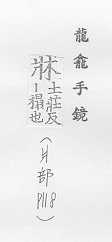 龍龕手鏡
牀土莊反
丨榻也
(爿部 P118)